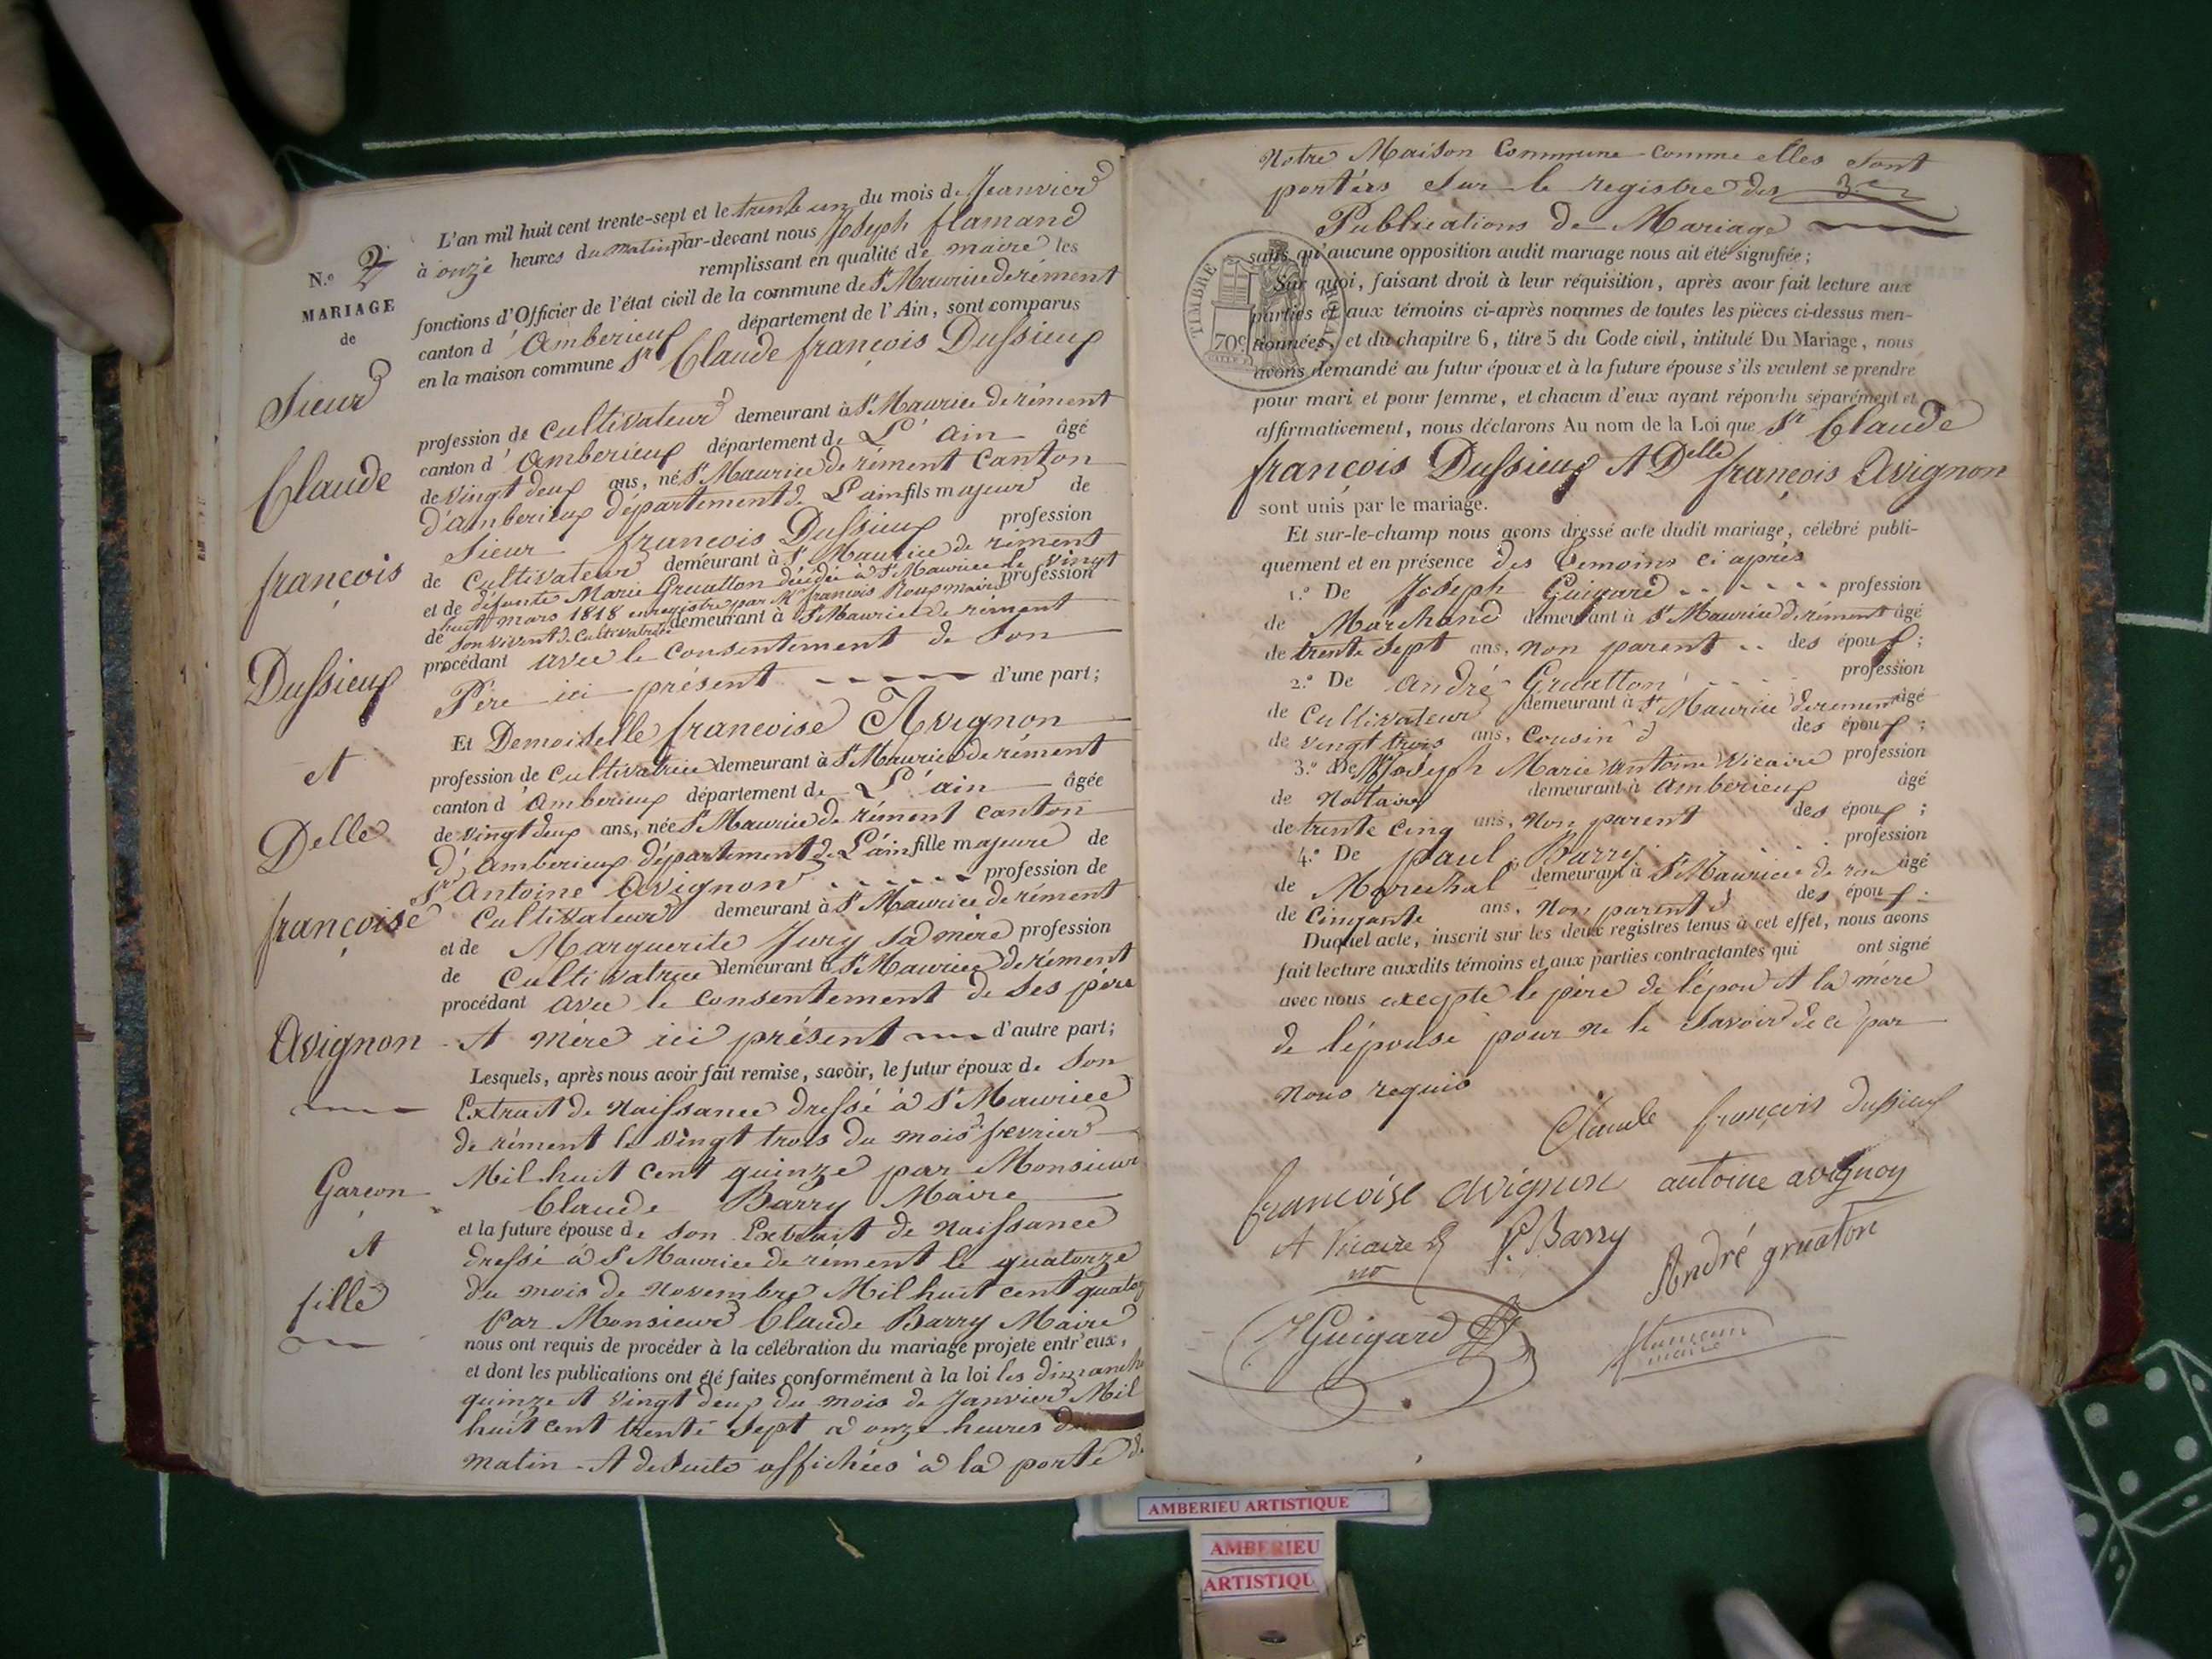 N.o 2
MARIAGE
de
Sieur
Claude
françois
Dussieux
et
Delle
françoise
Avignon
Garçon
et
fille
L'an mil huit cent trente-sept et le trente un du mois de Jeanvier
à onze heures du matin par-devant nous Joseph flamand
remplissant en qualité de maire les
fonctions d'Officier de l'état civil de la commune de St Maurice de rément
canton d'Amberieux département de l'Ain, sont comparus
en la maison commune Sr Claude françois Dussieux
profession de Cultivateur demeurant à St Maurice de rément
canton d'Amberieux département de L'ain âgé
de vingt deux ans, né St Maurice de rément Canton
d'amberieux département de L'ain fils majeur de
Sieur francois Dussieux profession
de Cultivateur demeurant à St Maurice de rément
et de défunte Marie Gruatton décédée à St Maurice le vingt profession
huit mars 1818 enregistré par Mr francois Roux maire
de son vivant de Cultivatrice demeurant à St Maurice de rément
procédant avec le consentement de Son
Père ici présent d'une part;
Et Demoiselle francoise Avignon
profession de Cultivatrice demeurant à St Maurice de rément
canton d'Amberieux département de L'ain âgée
de vingt deux ans, née St Maurice de rément canton
d'amberieux département de L'ain fille majeure de
Sr Antoine Avignon profession de
Cultivateur demeurant à St Maurice de rément
et de Marguerite Jury Sa mère profession
de Cultivatrice demeurant à St Maurice de rément
procédant avec le consentement de Ses père
et mère ici présent d'autre part;
Lesquels, après nous avoir fait remise, savoir, le futur époux de Son
Extrait de Naissance dressé à St Maurice
de rément le vingt trois du mois de fevrier
Mil huit cent quinze par Monsieur
Claude Barry Maire
et la future épouse de son Extrait de Naissance
dressé à St Maurice de rément le quatorze
du mois de Novembre Mil huit cent quatorz
Par Monsieur Claude Barry Maire
nous ont requis de procéder à la célébration du mariage projeté entr'eux,
et dont les publications ont été faites conformément à la loi les dimanche
quinze et vingt deux du mois de Janvier Mil
huit cent trente Sept à onze heures du
matin et de Suite affichées à la porte de
Notre Maison Commune comme elles sont
portées Sur le registre des
Publications de Mariage
sans qu'aucune opposition audit mariage nous ait été signifiée;
Sur quoi, faisant droit à leur réquisition, après avoir fait lecture aux
parties et aux témoins ci-après nommés de toutes les pièces ci-dessus men-
tionnées, et du chapitre 6, titre 5 du Code civil, intitulé Du Mariage, nous
avons demandé au futur époux et à la future épouse s'ils veulent se prendre
pour mari et pour femme, et chacun d'eux ayant répondu séparément et
affirmativement, nous déclarons Au nom de la Loi que Sr Claude
françois Dussieux et Delle françois Avignon
sont unis par le mariage.
Et sur-le-champ nous avons dressé acte dudit mariage, célébré publi-
quement et en présence des Temoins ci après
1.o De Joseph Guigard profession
de Marchand demeurant à St Maurice de rément âgé
de trente Sept ans, non parent des époux;
2.o De André Gruatton profession
de Cultivateur demeurant à St Maurice de rement âgé
de vingt trois ans, Cousin des époux;
3.o De Joseph Marie antoine Vicaire profession
de Notaire demeurant à Amberieux âgé
de trente cinq ans, Non parent des époux;
4.o De paul Barry profession
de Marechal demeurant à St Maurice de rém âgé
de Cinqante ans, Non parent des époux.
Duquel acte, inscrit sur les deux registres tenus à cet effet, nous avons
fait lecture auxdits témoins et aux parties contractantes qui ont signé
avec nous excepte le père de l'épou et la mère
de l'épouse pour ne le Savoir de ce par
Nous requis
Claude françois dussieux
francoise avignon antoine avignon
A Vicaire P. Barry André gruaton
no
J Guigard
flamand
maire
TIMBRE ROYAL
70c
AMBERIEU ARTISTIQUE
AMBERIEU
ARTISTIQU